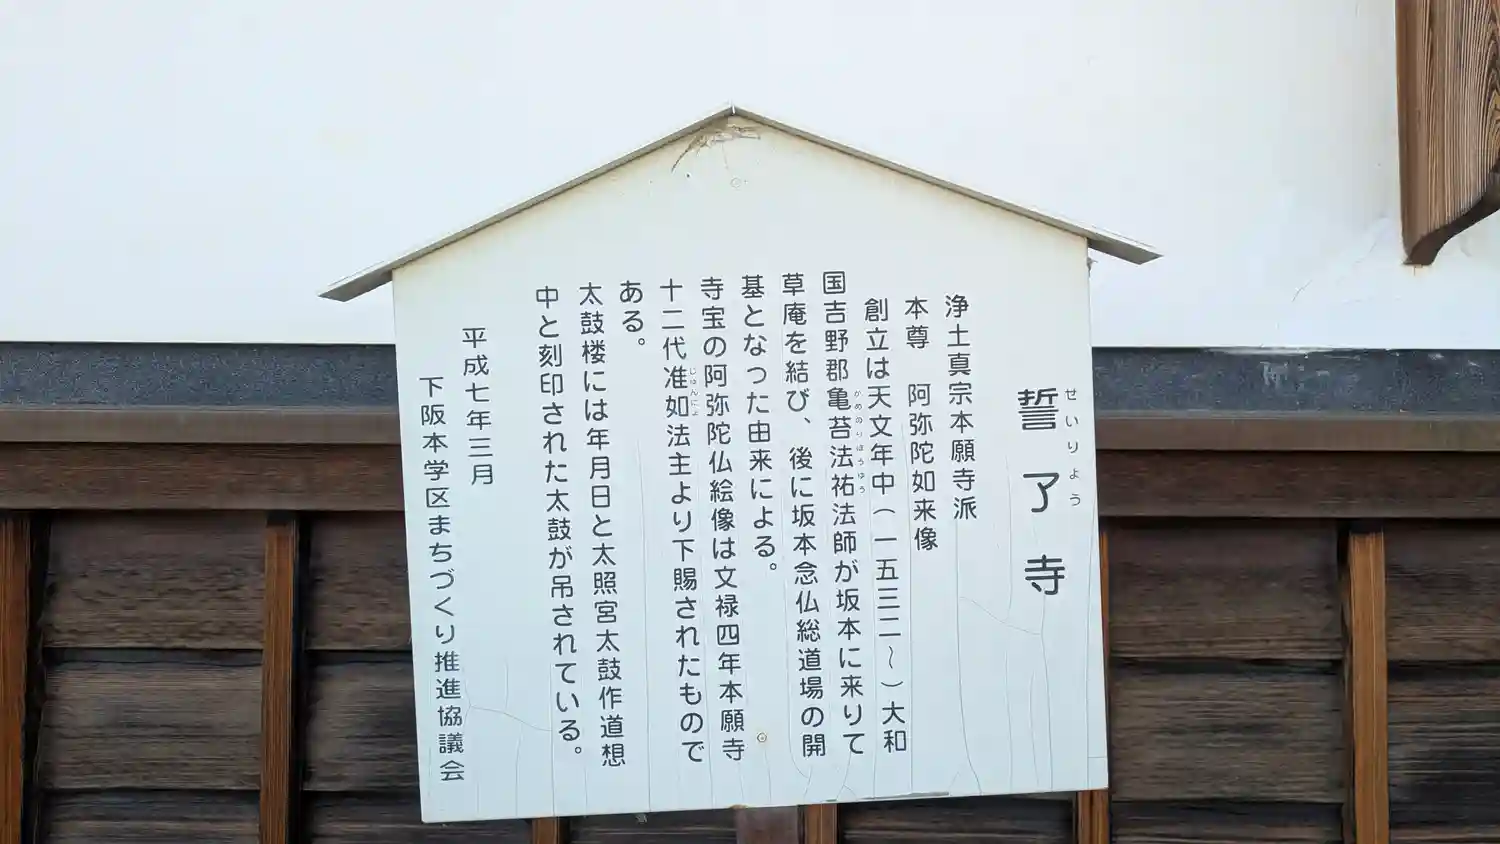 誓了寺
せいりょう
浄土真宗本願寺派
本尊　阿弥陀如来像
創立は天文年中（一五三二〜）大和
国吉野郡亀苔法祐法師が坂本に来りて
かめのりほうゆう
草庵を結び、後に坂本念仏総道場の開
基となった由来による。
寺宝の阿弥陀仏絵像は文禄四年本願寺
十二代准如法主より下賜されたもので
じゅんにょ
ある。
太鼓楼には年月日と太照宮太鼓作道想
中と刻印された太鼓が吊されている。
平成七年三月
下阪本学区まちづくり推進協議会